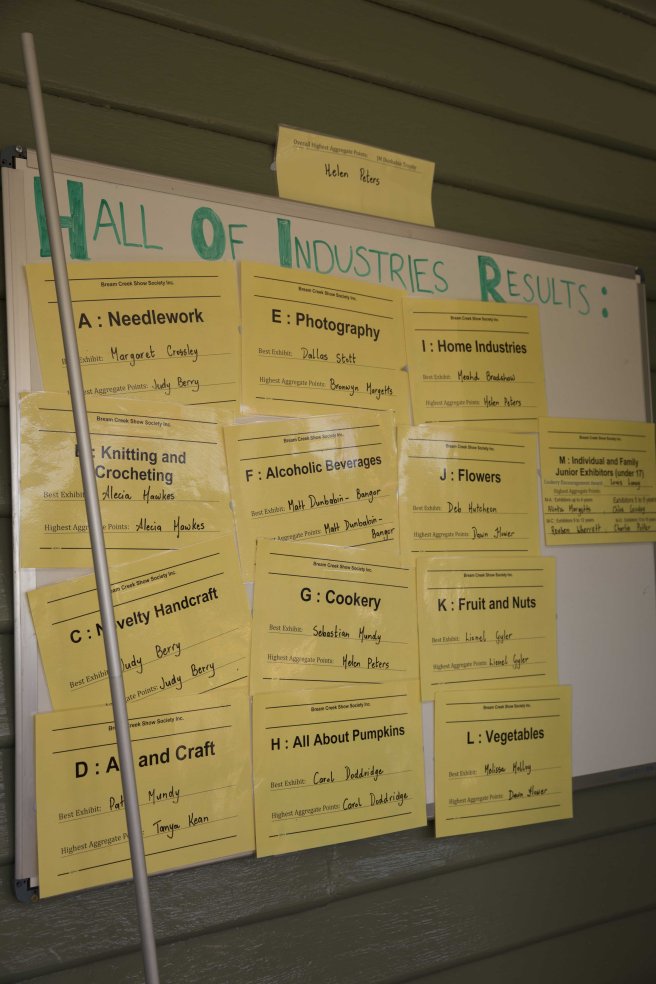 Overall Highest Aggregate Points:
Helen Peters
HALL OF INDUSTRIES RESULTS:
Bream Creek Show Society Inc.
A : Needlework
Best Exhibit: Margaret Crossley
Highest Aggregate Points: Judy Berry
Bream Creek Show Society Inc.
E : Photography
Best Exhibit: Dallas Stott
Highest Aggregate Points: Bronwyn Margetts
Bream Creek Show Society Inc.
I : Home Industries
Best Exhibit: Bradshaw
Highest Aggregate Points: Helen Peters
Bream Creek Show Society Inc.
B : Knitting and
Crocheting
Best Exhibit: Alecia Hawkes
Highest Aggregate Points: Alecia Hawkes
Bream Creek Show Society Inc.
F : Alcoholic Beverages
Best Exhibit: Matt Dunbabin - Bangor
Highest Aggregate Points: Matt Dunbabin -
Bangor
Bream Creek Show Society Inc.
J : Flowers
Best Exhibit: Deb Hutcheon
Highest Aggregate Points: Dawn Flower
Bream Creek Show Society Inc.
M : Individual and Family
Junior Exhibitors (under 17)
Cookery Encouragement Award
Highest Aggregate Points:
Margetts
Charlie
Bream Creek Show Society Inc.
C : Novelty Handcraft
Best Exhibit: Judy Berry
Aggregate Points: Judy Berry
Bream Creek Show Society Inc.
G : Cookery
Best Exhibit: Sebastian Mundy
Highest Aggregate Points: Helen Peters
Bream Creek Show Society Inc.
K : Fruit and Nuts
Best Exhibit: Lionel Gyler
Highest Aggregate Points: Lionel Gyler
Bream Creek Show Society Inc.
D : A and Craft
Best Exhibit: Pat Mundy
Highest Aggregate Points: Tanya Kean
Bream Creek Show Society Inc.
H : All About Pumpkins
Best Exhibit: Carol Doddridge
Highest Aggregate Points: Carol Doddridge
Bream Creek Show Society Inc.
L : Vegetables
Best Exhibit: Melissa
Highest Aggregate Points: Dawn Flower